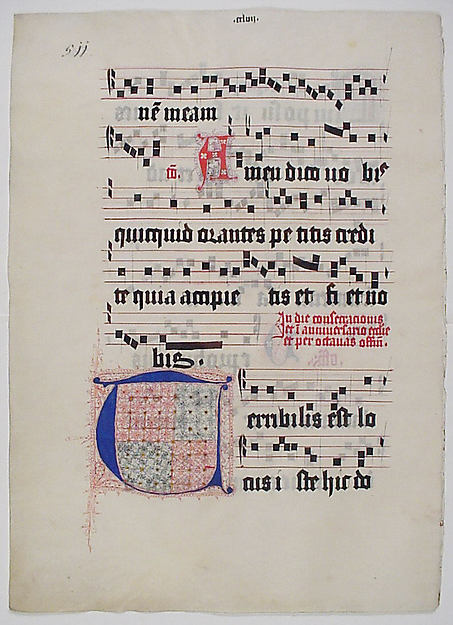 .cclvij.
nē meam
cō. Amen dico vobis
quicquid orantes petitis credi
te quia accipietis et fiet vo
bis.
In die consecrationis
et ī anniversario ecclie
et per octavas offm.
Terribilis est lo
cus iste hic do